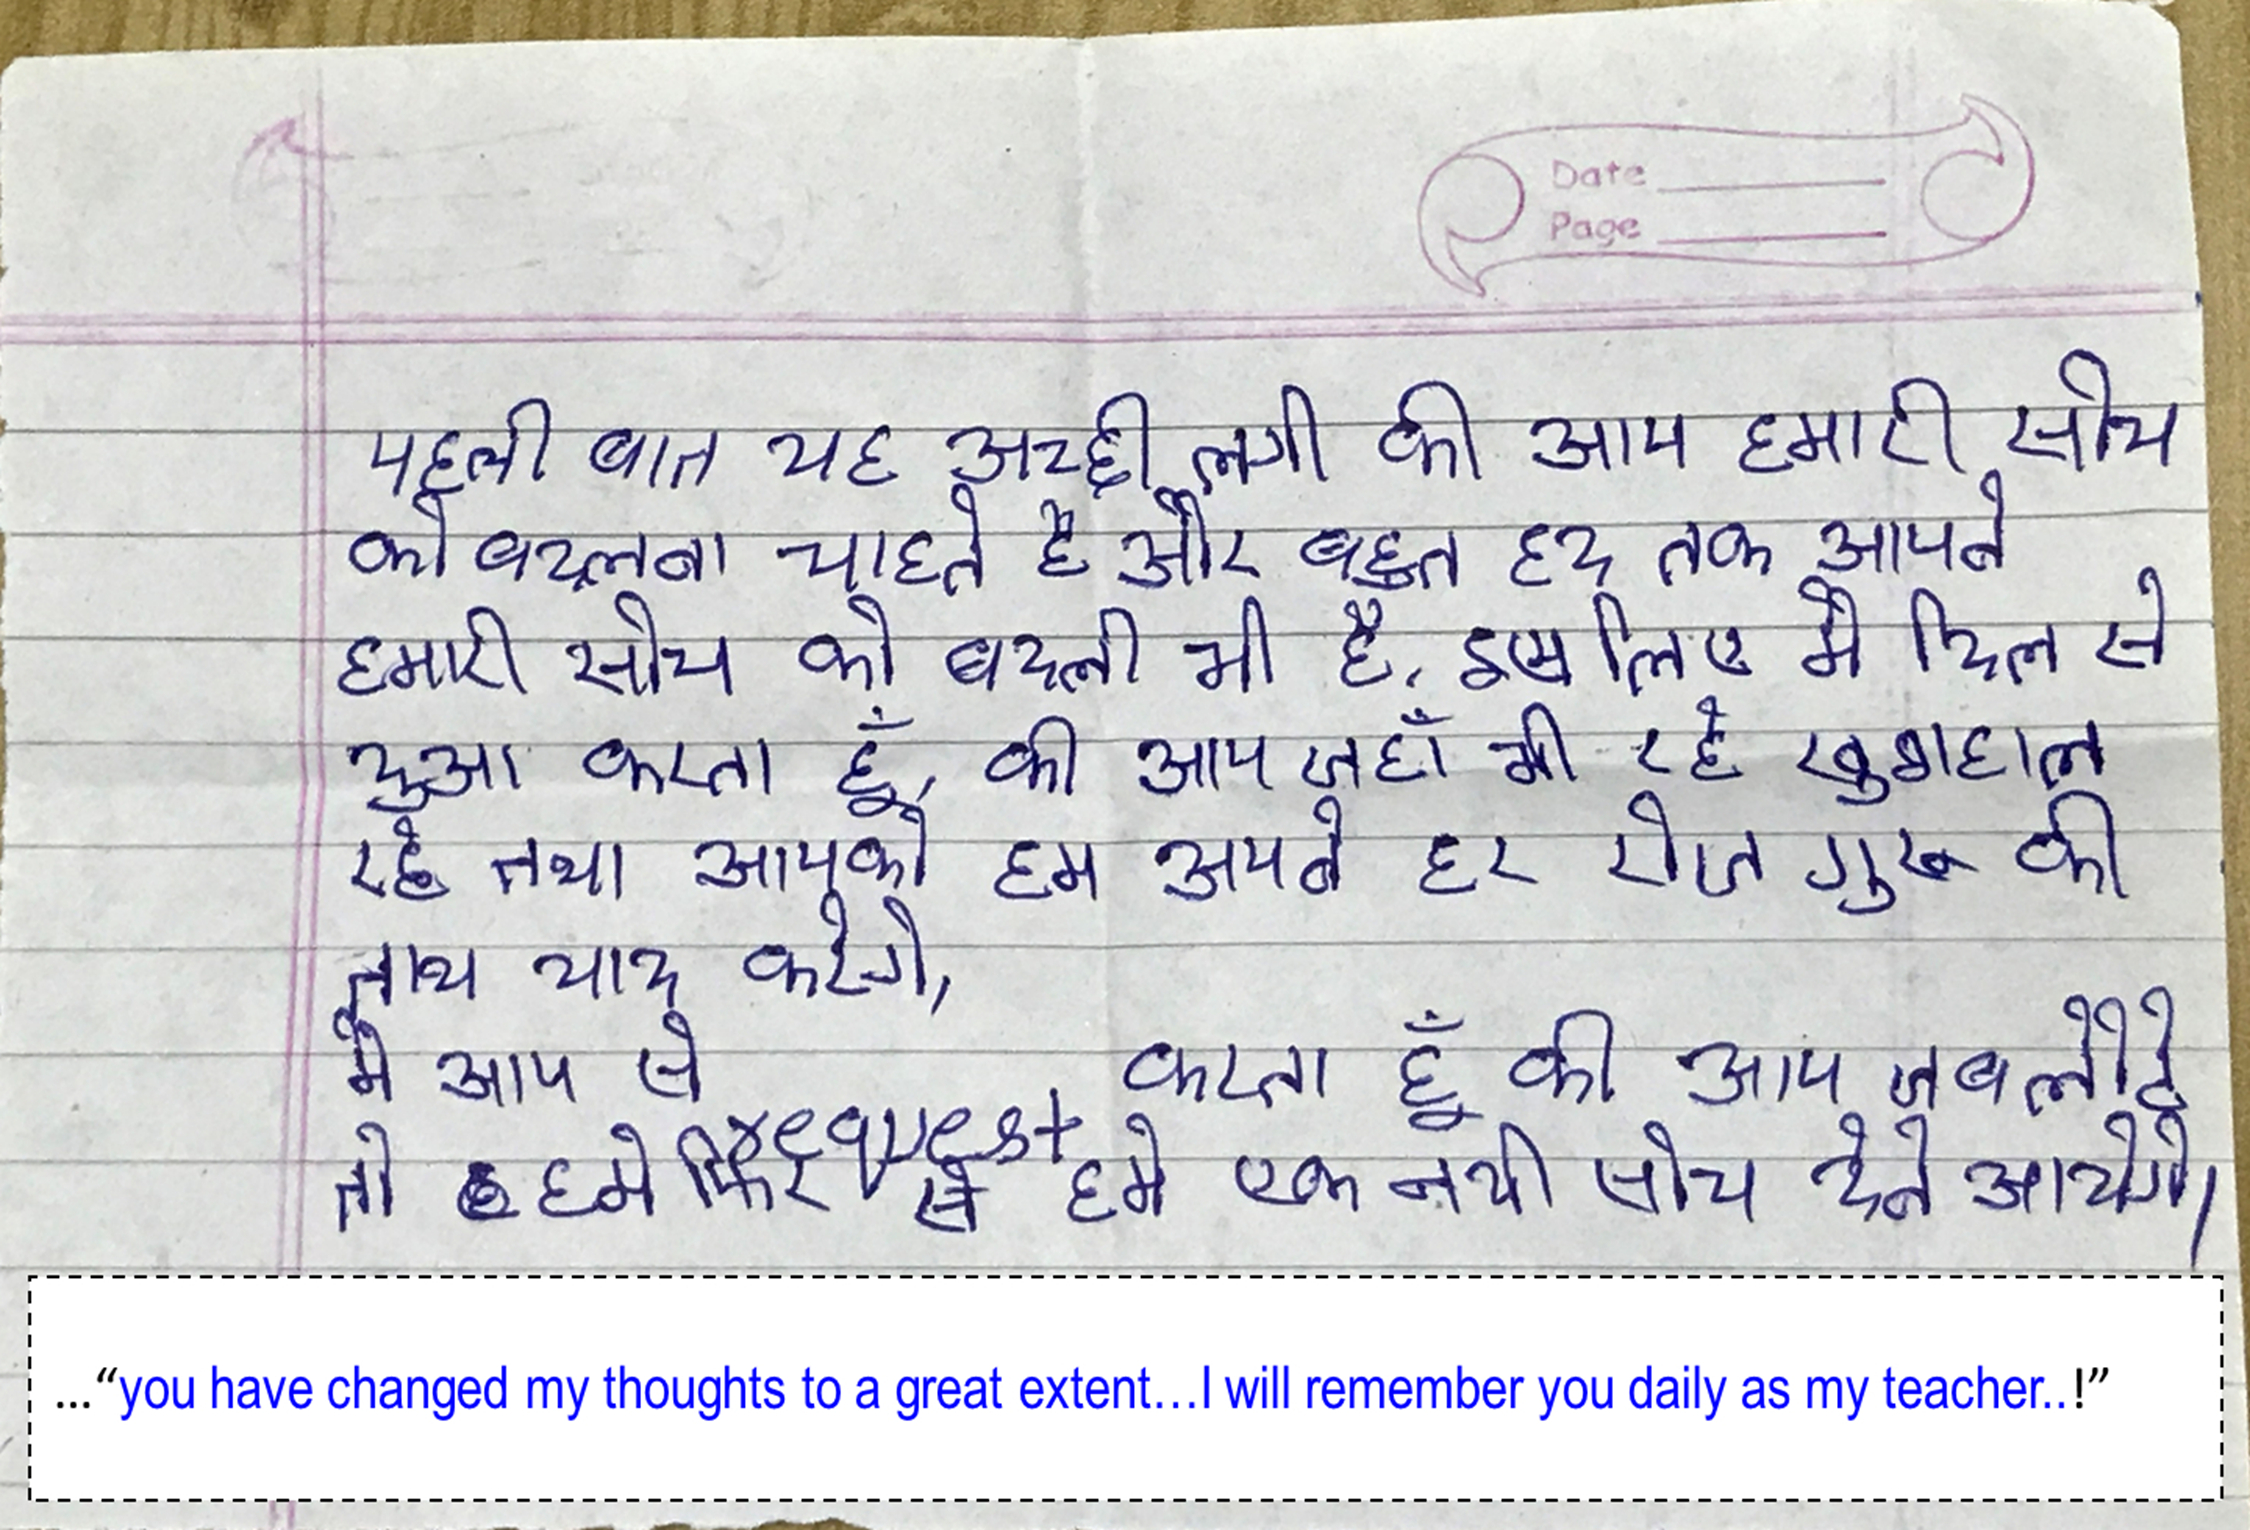 Date
Page
पहली बात यह अच्छी लगी की आप हमारी सोच
को बदलना चाहते है और बहुत हद तक आपने
हमारी सोच को बदली भी है, इस लिए मै दिल से
दुआ करता हूँ, की आप जहाँ भी रहे खुशहाल
रहे तथा आपको हम अपने हर रोज गुरू की
नाथ याद करेगे,
मे आप से request करता हूँ की आप जब लौटे
तो हमे फिर से हमे एक नयी सोच देने आयेगे।
...“you have changed my thoughts to a great extent...I will remember you daily as my teacher..!”